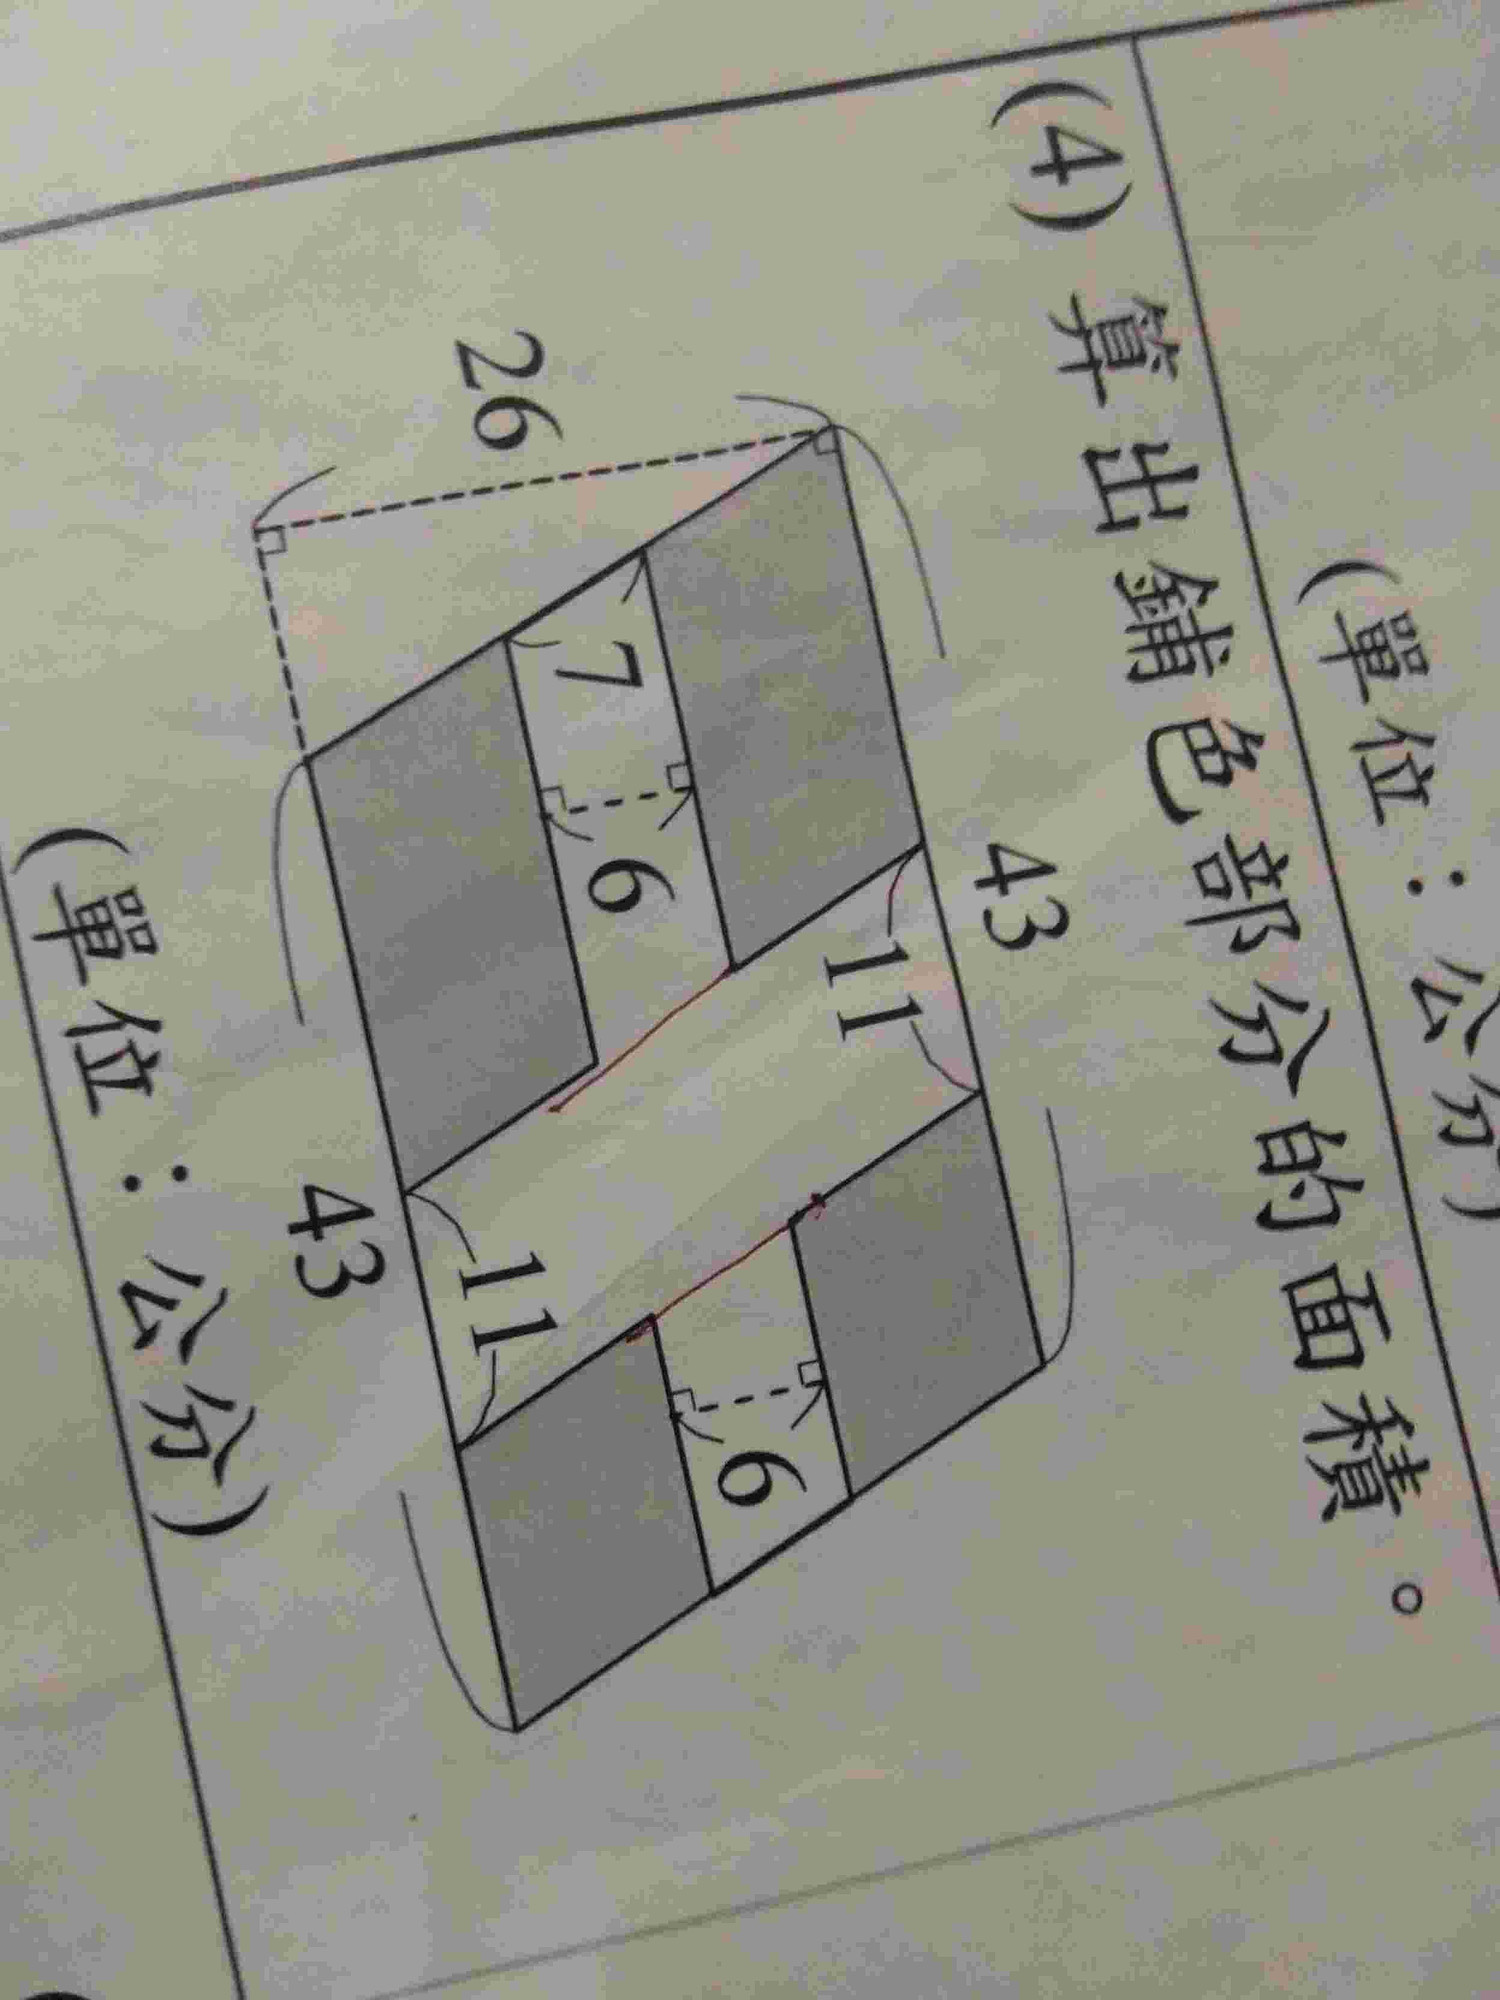 (單位：公分)
(4) 算出鋪色部分的面積。
43
26
11
7
6
6
11
43
(單位：公分)